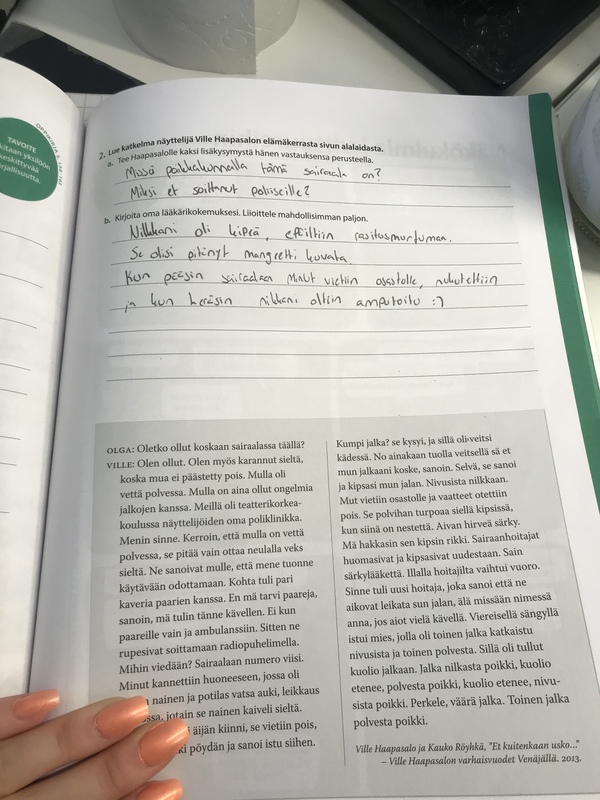 OPPIKIRJA S.
TAVOITE
itaan yksilöön
keskittyvää
irjallisuutta.
2. Lue katkelma näyttelijä Ville Haapasalon elämäkerrasta sivun alalaidasta.
a. Tee Haapasalolle kaksi lisäkysymystä hänen vastauksensa perusteella.
Missä paikkakunnalla tämä sairaala on?
Miksi et soittanut poliiseille?
b. Kirjoita oma lääkärikokemuksesi. Liioittele mahdollisimman paljon.
Nilkkani oli kipeä, epäiltiin rasitusmurtuman.
Se olisi pitänyt mangeetti kuvata.
Kun pääsin sairaalaan minut vietiin osastolle, nukutettiin
ja kun heräsin nilkkani oltiin amputoitu :')
OLGA: Oletko ollut koskaan sairaalassa täällä?
VILLE: Olen ollut. Olen myös karannut sieltä,
koska mua ei päästetty pois. Mulla oli
vettä polvessa. Mulla on aina ollut ongelmia
jalkojen kanssa. Meillä oli teatterikorkea-
koulussa näyttelijöiden oma poliklinikka.
Menin sinne. Kerroin, että mulla on vettä
polvessa, se pitää vain ottaa neulalla veks
sieltä. Ne sanoivat mulle, että mene tuonne
käytävään odottamaan. Kohta tuli pari
kaveria paarien kanssa. En mä tarvi paareja,
sanoin, mä tulin tänne kävellen. Ei kun
paareille vain ja ambulanssiin. Sitten ne
rupesivat soittamaan radiopuhelimella.
Mihin viedään? Sairaalaan numero viisi.
Minut kannettiin huoneeseen, jossa oli
nainen ja potilas vatsa auki, leikkaus
ssa, jotain se nainen kaiveli sieltä.
äijän kiinni, se vietiin pois,
ki pöydän ja sanoi istu siihen.
Kumpi jalka? se kysyi, ja sillä oli veitsi
kädessä. No ainakaan tuolla veitsellä sä et
mun jalkaani koske, sanoin. Selvä, se sanoi
ja kipsasi mun jalan. Nivusista nilkkaan.
Mut vietiin osastolle ja vaatteet otettiin
pois. Se polvihan turpoaa siellä kipsissä,
kun siinä on nestettä. Aivan hirveä särky.
Mä hakkasin sen kipsin rikki. Sairaanhoitajat
huomasivat ja kipsasivat uudestaan. Sain
särkylääkettä. Illalla hoitajilta vaihtui vuoro.
Sinne tuli uusi hoitaja, joka sanoi että ne
aikovat leikata sun jalan, älä missään nimessä
anna, jos aiot vielä kävellä. Viereisellä sängyllä
istui mies, jolla oli toinen jalka katkaistu
nivusista ja toinen polvesta. Sillä oli tullut
kuolio jalkaan. Jalka nilkasta poikki, kuolio
etenee, polvesta poikki, kuolio etenee, nivu-
sista poikki. Perkele, väärä jalka. Toinen jalka
polvesta poikki.
Ville Haapasalo ja Kauko Röyhkä, "Et kuitenkaan usko..."
– Ville Haapasalon varhaisvuodet Venäjällä. 2013.